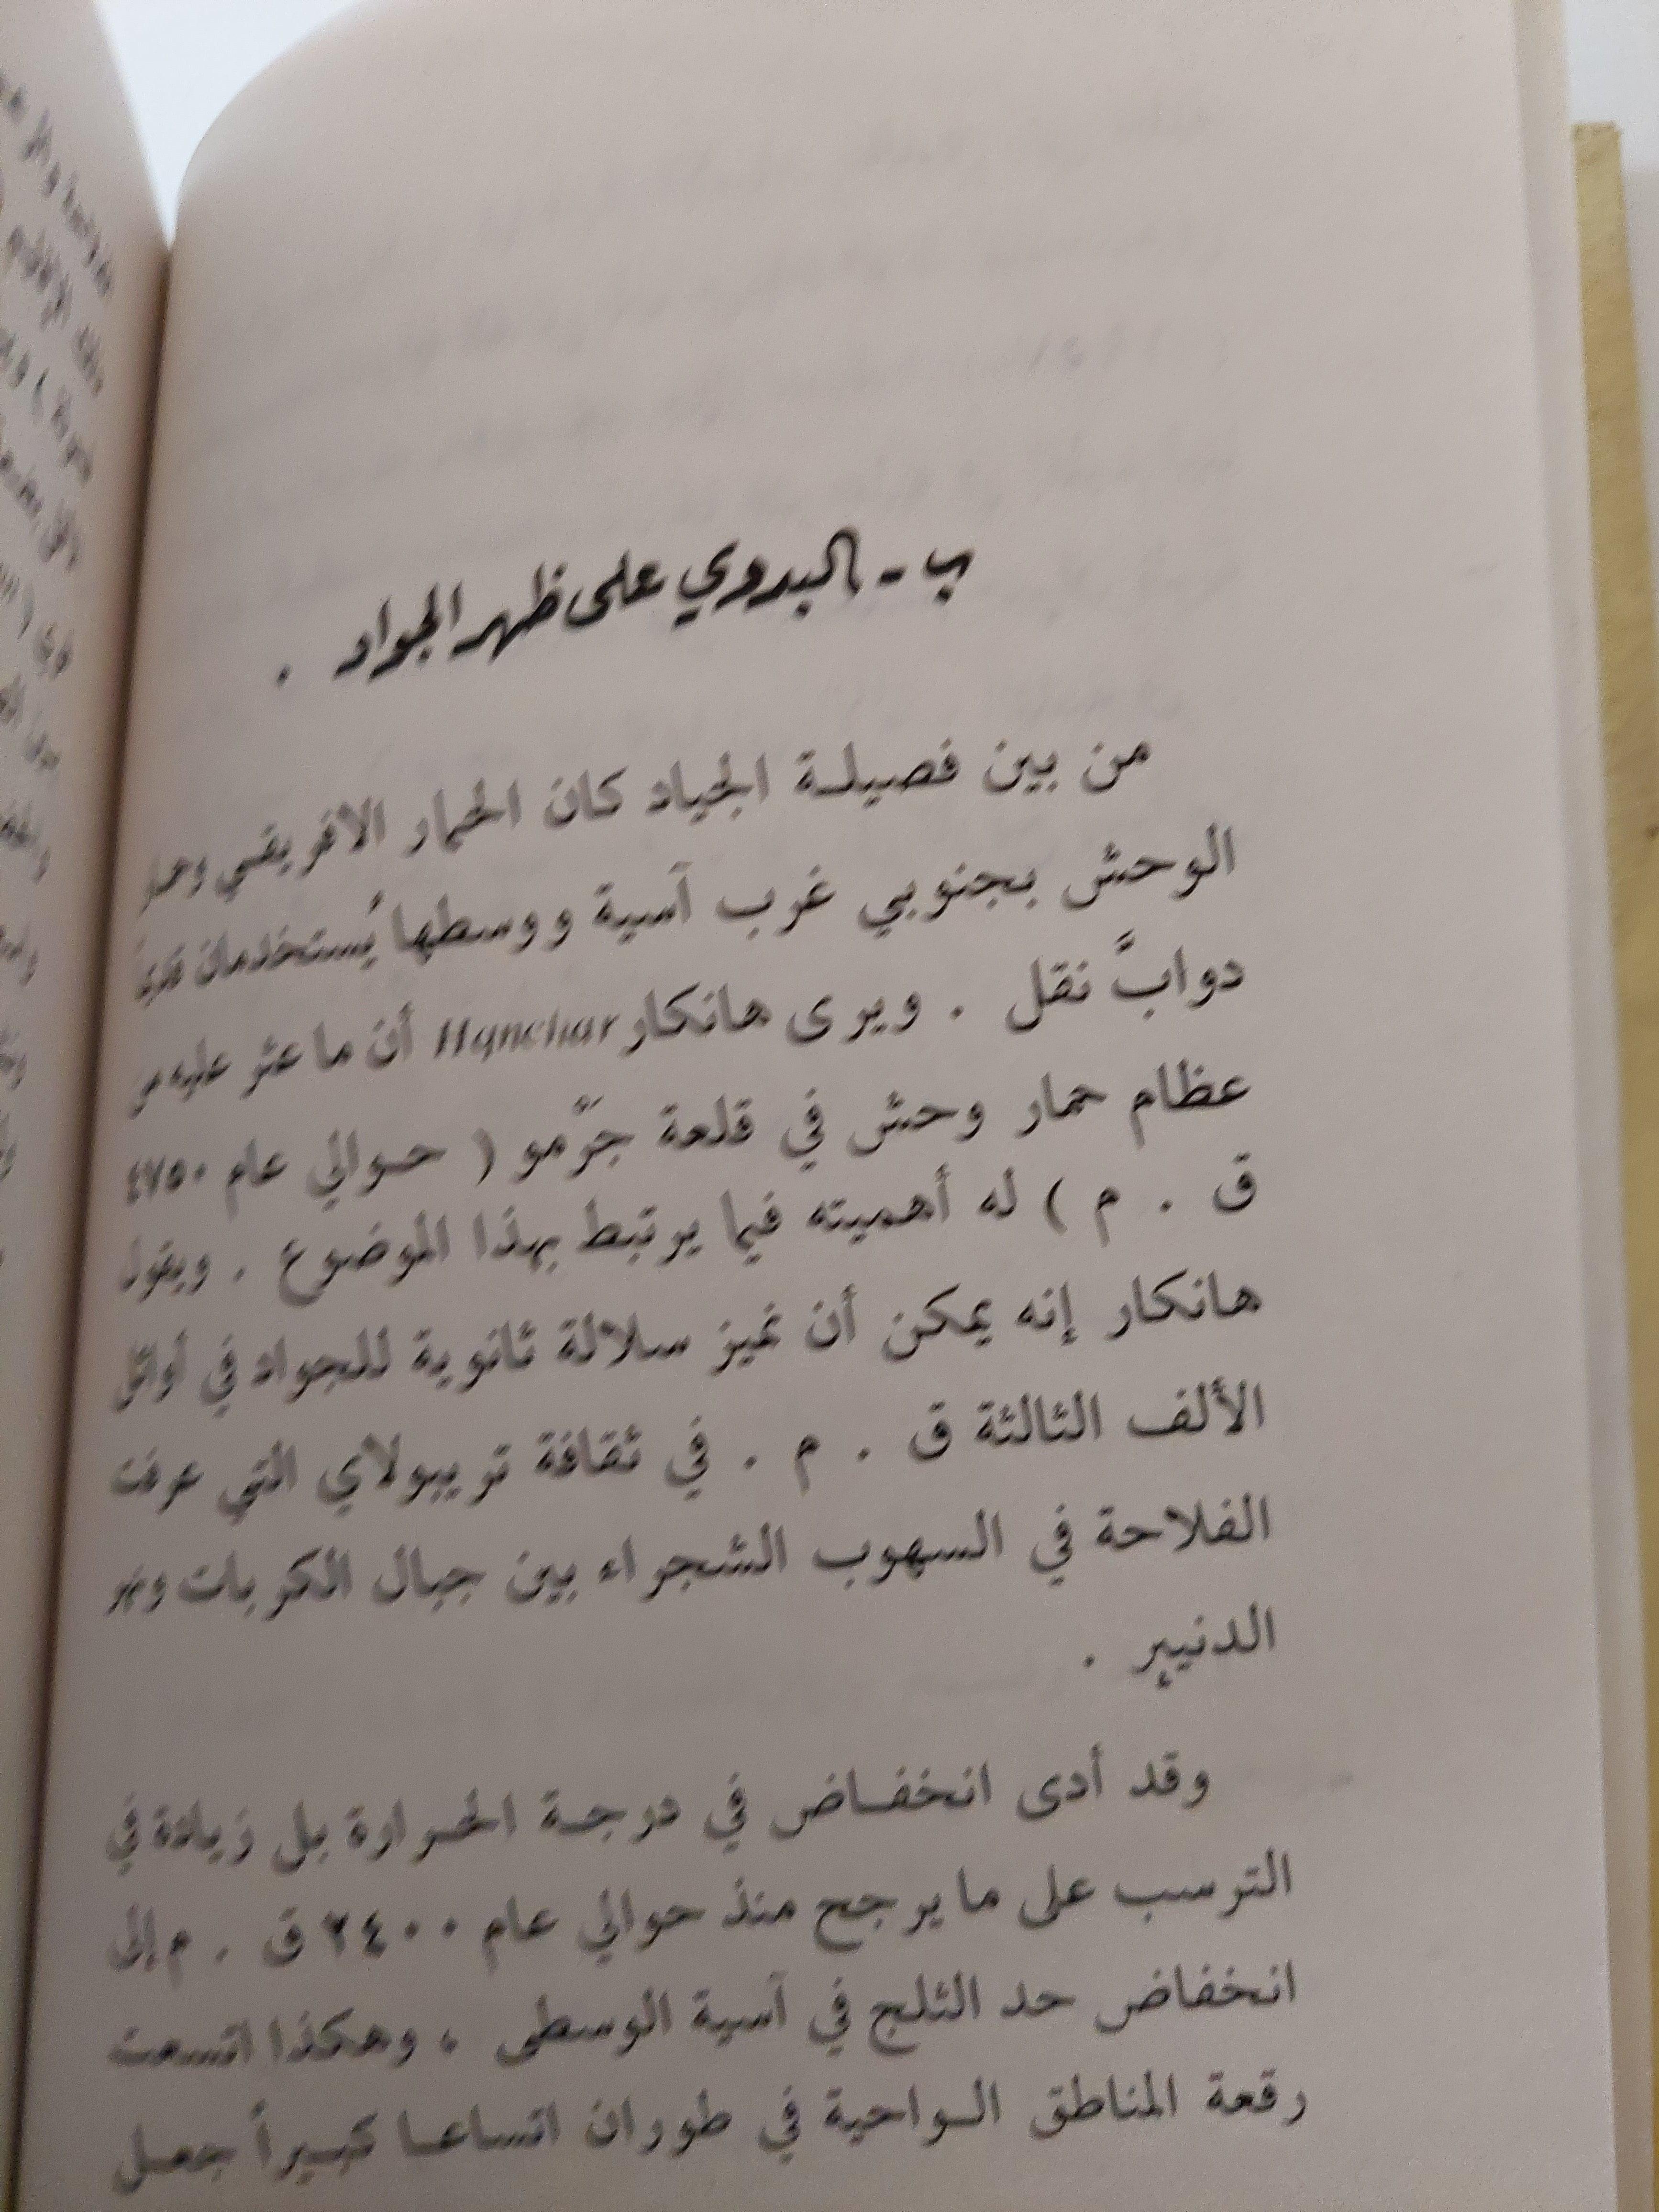 ب - البدوي على ظهر الجواد .
من بين فصيلة الجياد كان الحمار الافريقي وحمار
الوحش بجنوبي غرب آسية ووسطها يُستخدمان قديماً
دوابَّ نقل . ويرى هانكار Hqnchar أن ما عثر عليه من
عظام حمار وحش في قلعة جَرْمو ( حوالي عام ٤٧٥٠
ق . م ) له أهميته فيما يرتبط بهذا الموضوع . ويقول
هانكار إنه يمكن أن نميز سلالة ثانوية للجواد في أوائل
الألف الثالثة ق . م . في ثقافة تريبولاي التي عرفت
الفلاحة في السهوب الشجراء بين جبال الكربات ونهر
الدنيپر .
وقد أدى انخفاض في درجة الحرارة بل زيادة في
الترسب على ما يرجح منذ حوالي عام ٢٤٠٠ ق . م إلى
انخفاض حد الثلج في آسية الوسطى ، وهكذا اتسعت
رقعة المناطق الواحية في طوران اتساعا كبيراً جعل